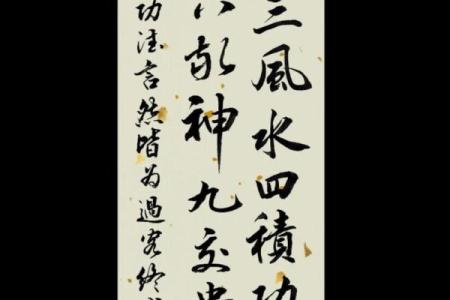 三風水四積功
敬神九交貴
功言然皆為過客終